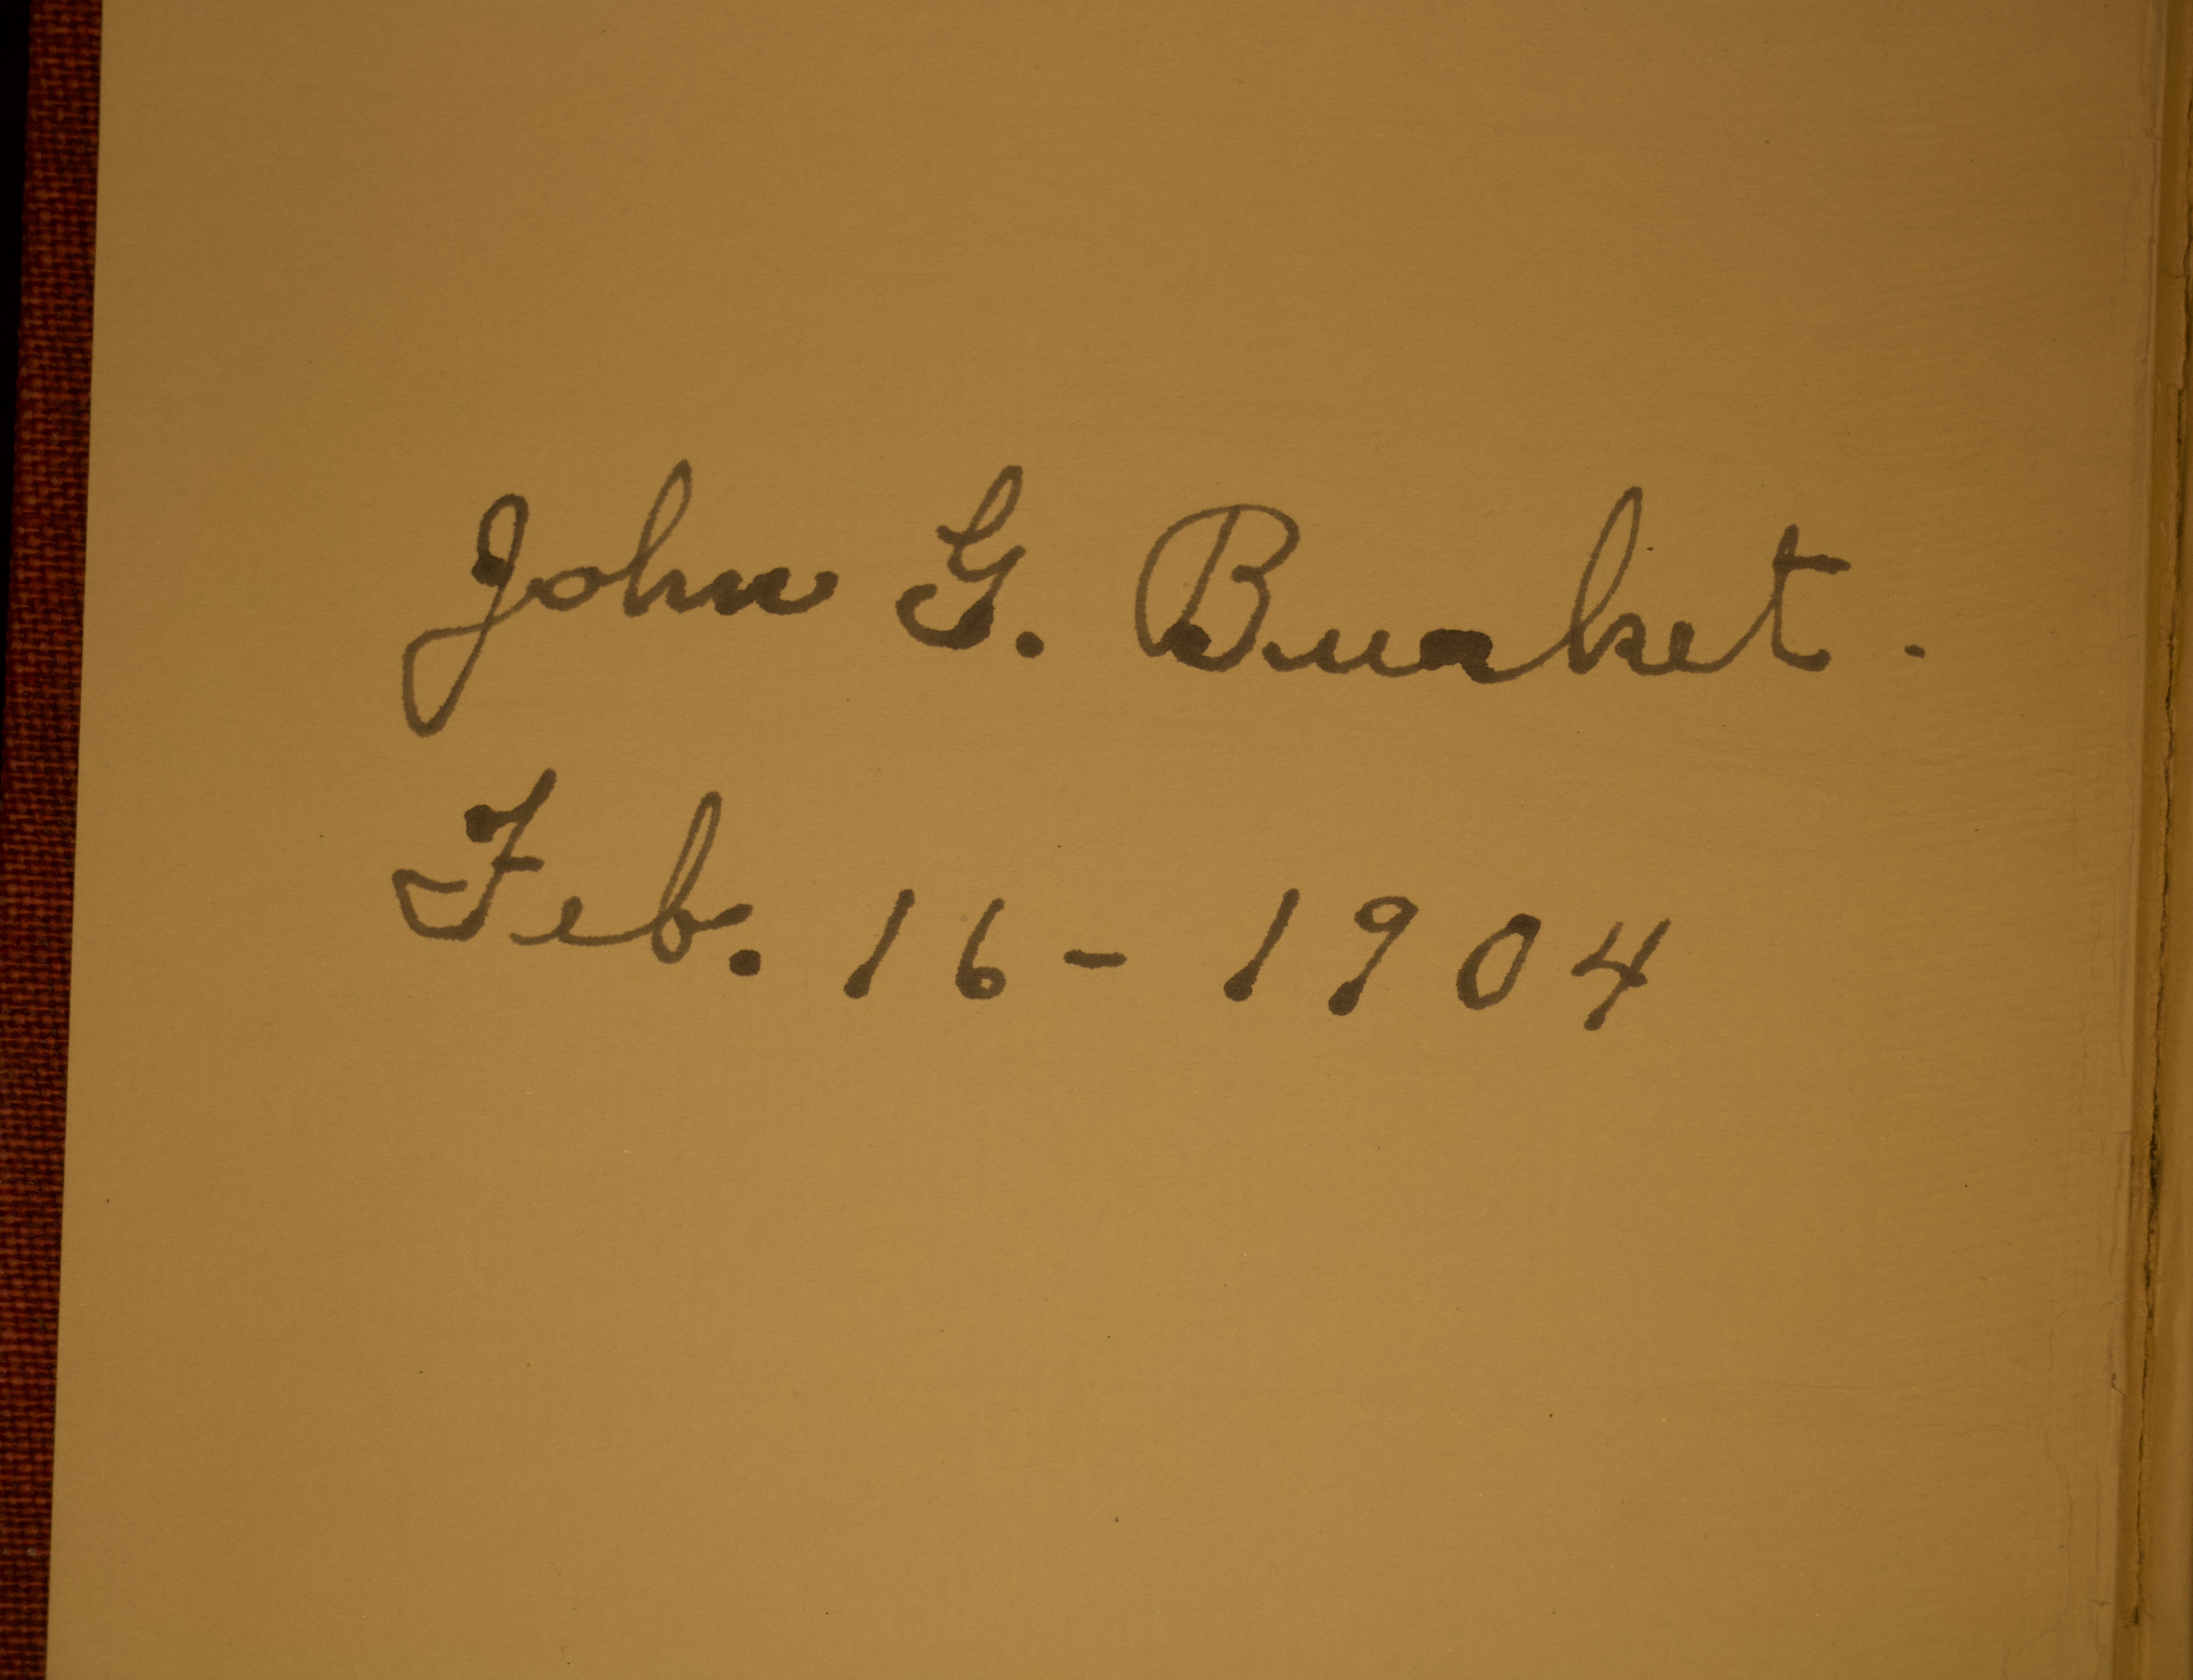 John G. Burket.
Feb. 16 - 1904